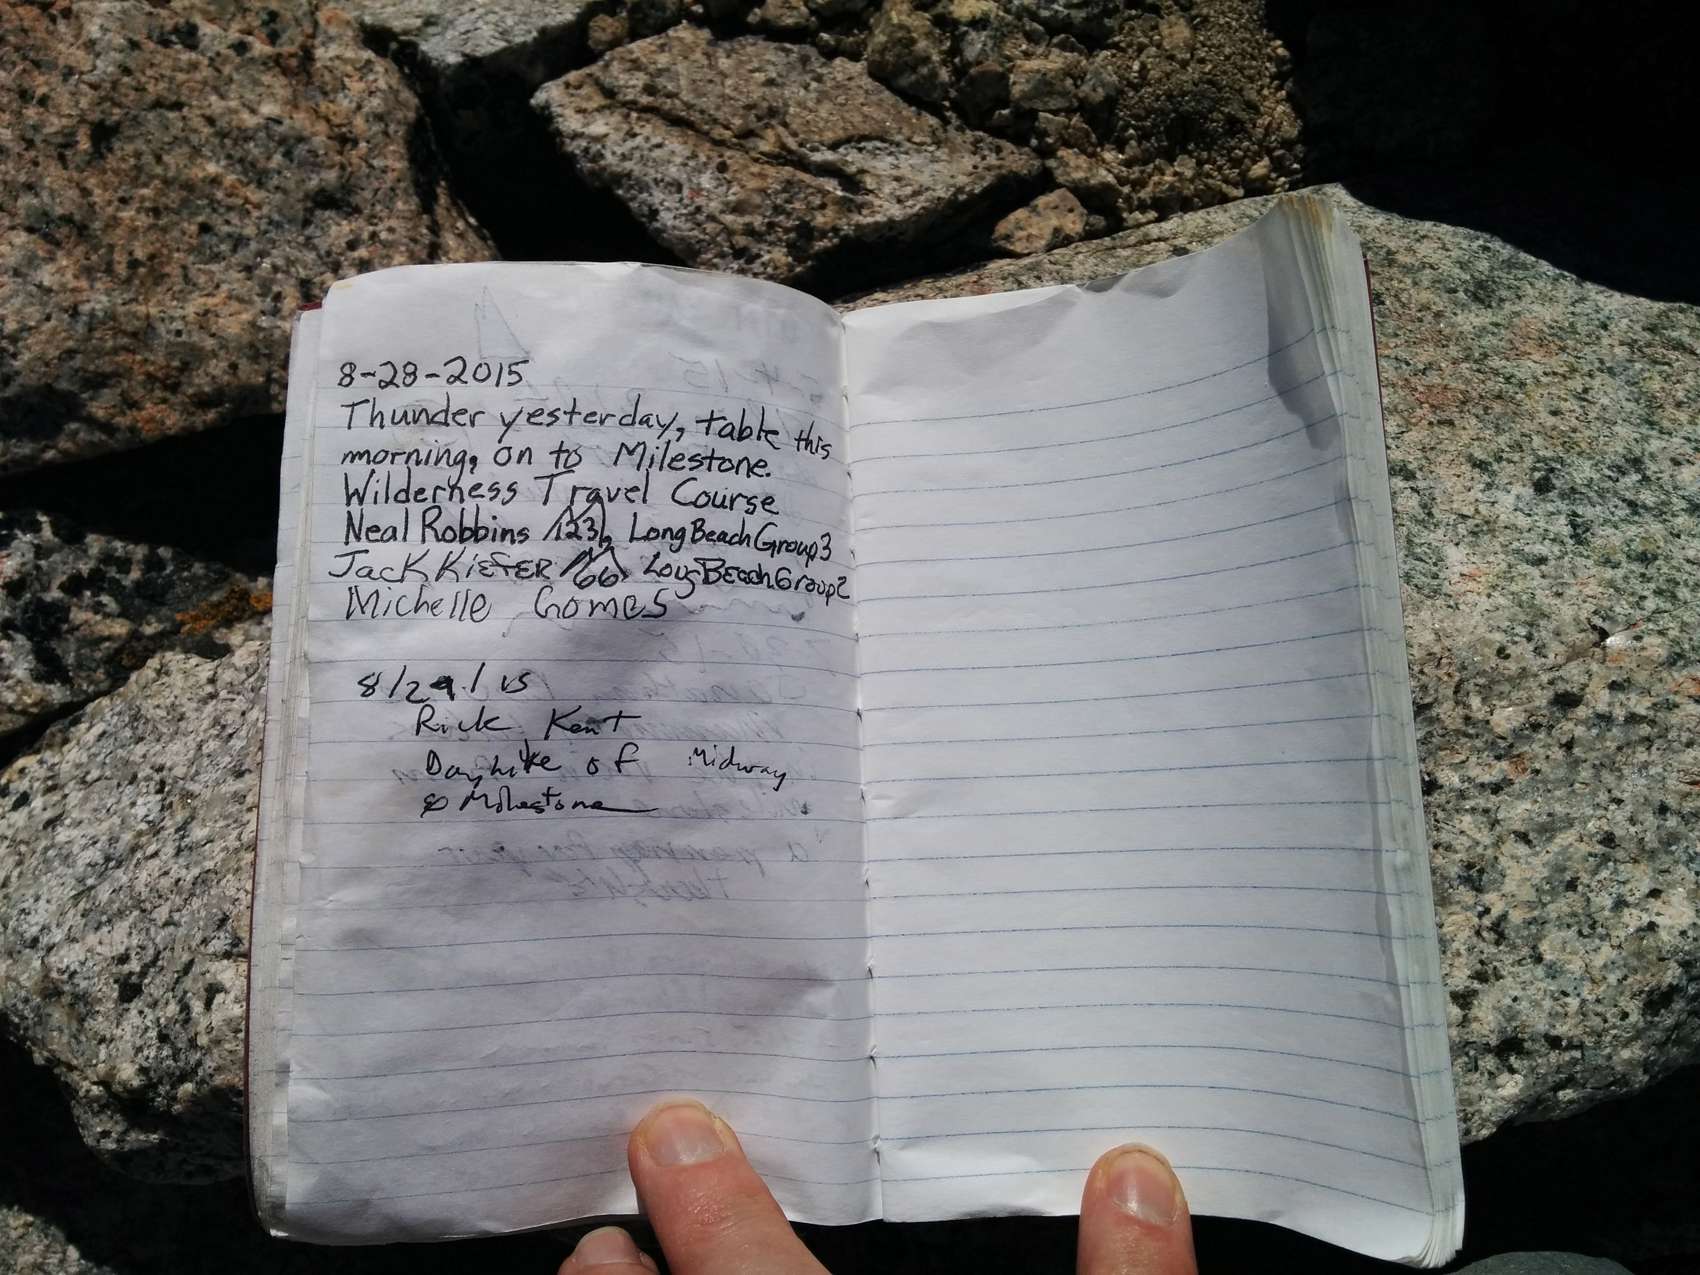 8-28-2015
Thunder yesterday, table this
morning, on to Milestone.
Wilderness Travel Course
Neal Robbins 123, Long Beach Group 3
Jack Kiefer 66, Long Beach Group 2
Michelle Gomes
8/29/15
Rick Kent
Dayhike of Midway
& Milestone